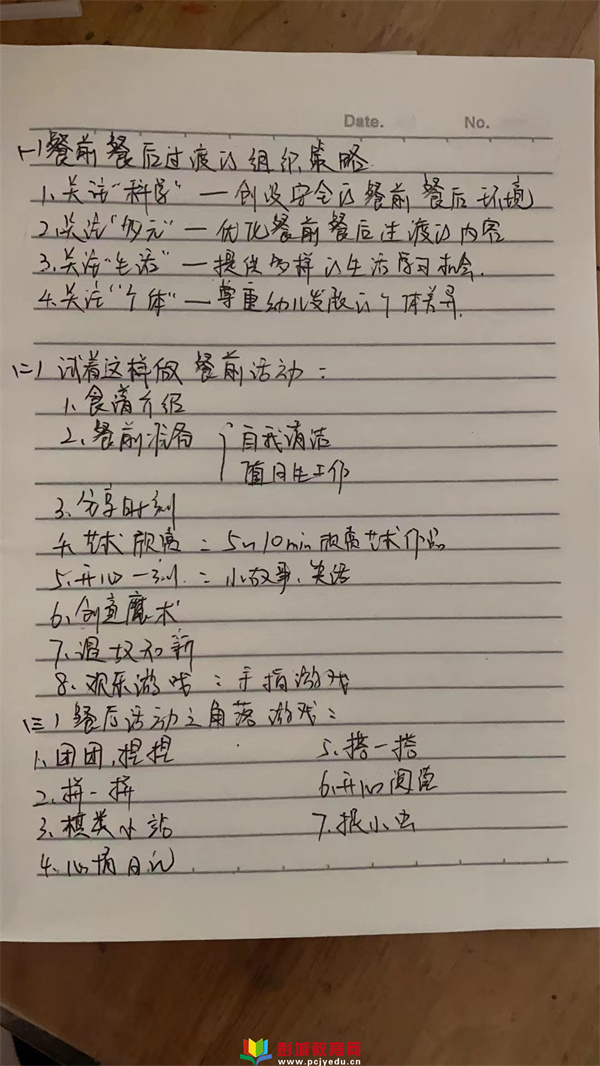 Date. No.
(一)餐前餐后过渡的组织策略
1.关注“科学”—创设安全的餐前餐后环境
2.关注“多元”—优化餐前餐后过渡的内容
3.关注“生活”—提供多样的生活学习机会.
4.关注“个体”—尊重幼儿发展的个体差异.
(二)试着这样做 餐前活动:
1、食谱介绍
2、餐前准备 { 自我清洁
值日生工作
3、分享时刻
4、艺术欣赏:5~10min欣赏艺术作品
5、开心一刻:小故事、笑话
6、创意魔术
7、温故知新
8、欢乐游戏:手指游戏
(三)餐后活动之角落游戏:
1、团团,捏捏 5、搭一搭
2、拼一拼 6、开心阅读
3、棋类小站 7、捉小虫
4、心情日记
彭城教育网
www.pcjyedu.cn